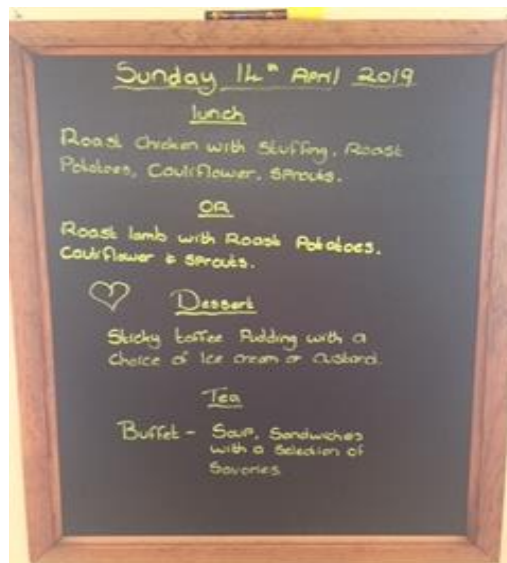 Sunday 14th April 2019
lunch
Roast Chicken with Stuffing, Roast
Potatoes, Cauliflower, Sprouts.
OR
Roast lamb with Roast Potatoes.
Cauliflower & Sprouts.
Dessert
Sticky toffee Pudding with a
Choice of Ice cream or custard.
Tea
Buffet - Soup, Sandwiches
with a Selection of
Savories